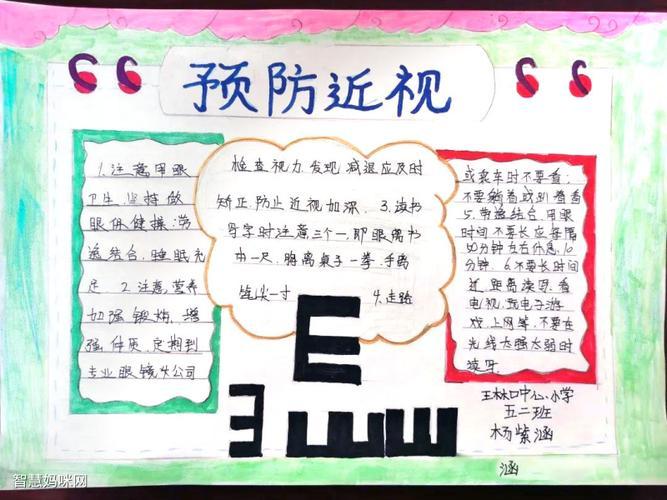 预防近视
1.注意用眼
卫生,坚持做
眼保健操.劳
逸结合,睡眠充
足 2.注意,营养
加强锻炼,增
强,体质,定期到
专业眼镜公司
检查视力.发现减退应及时
矫正.防止近视加深. 3.读书
写字时注意三个一,即眼离书
本一尺,胸离桌子一拳,手离
笔尖一寸 4.走路
或乘车时不要看;
不要躺着或趴着看
5.劳逸结合.用眼
时间不要长应每隔
50分钟左右休息10
分钟. 6.不要长时间
近距离读写.看
电视.玩电子游
戏.上网等,不要在
光线太强太弱时
读写
E
王林口中心小学
五二班
杨紫涵
涵
智慧妈咪网